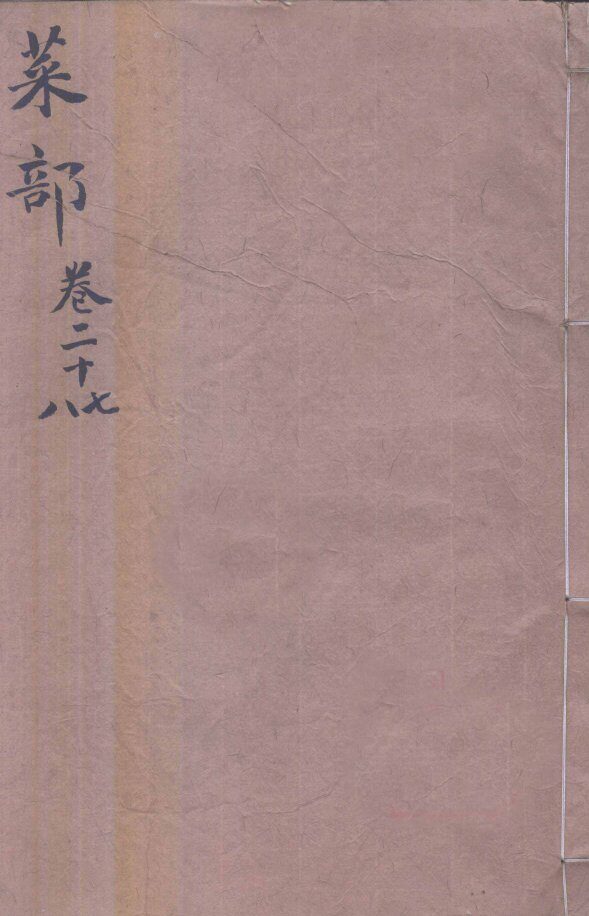 菜部
卷二十七八